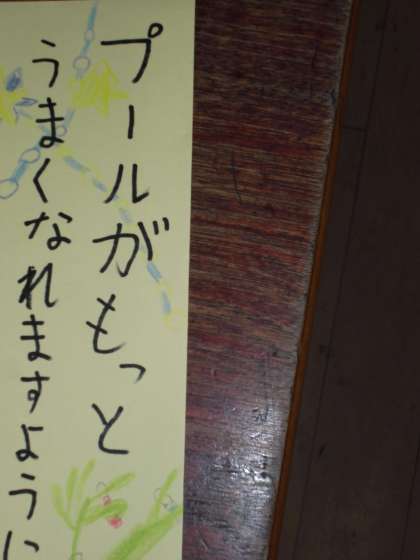 プールがもっと
うまくなれますように